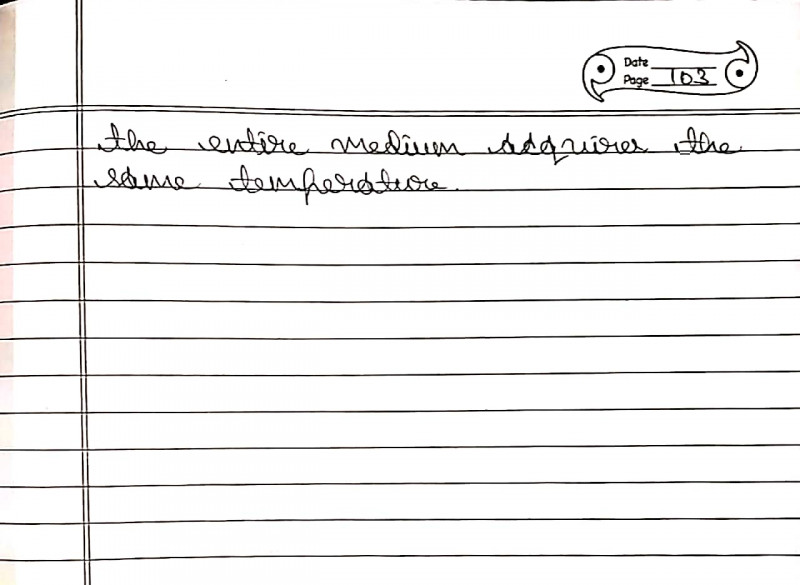 Date
Page 103
the entire medium acquires the
same temperature.